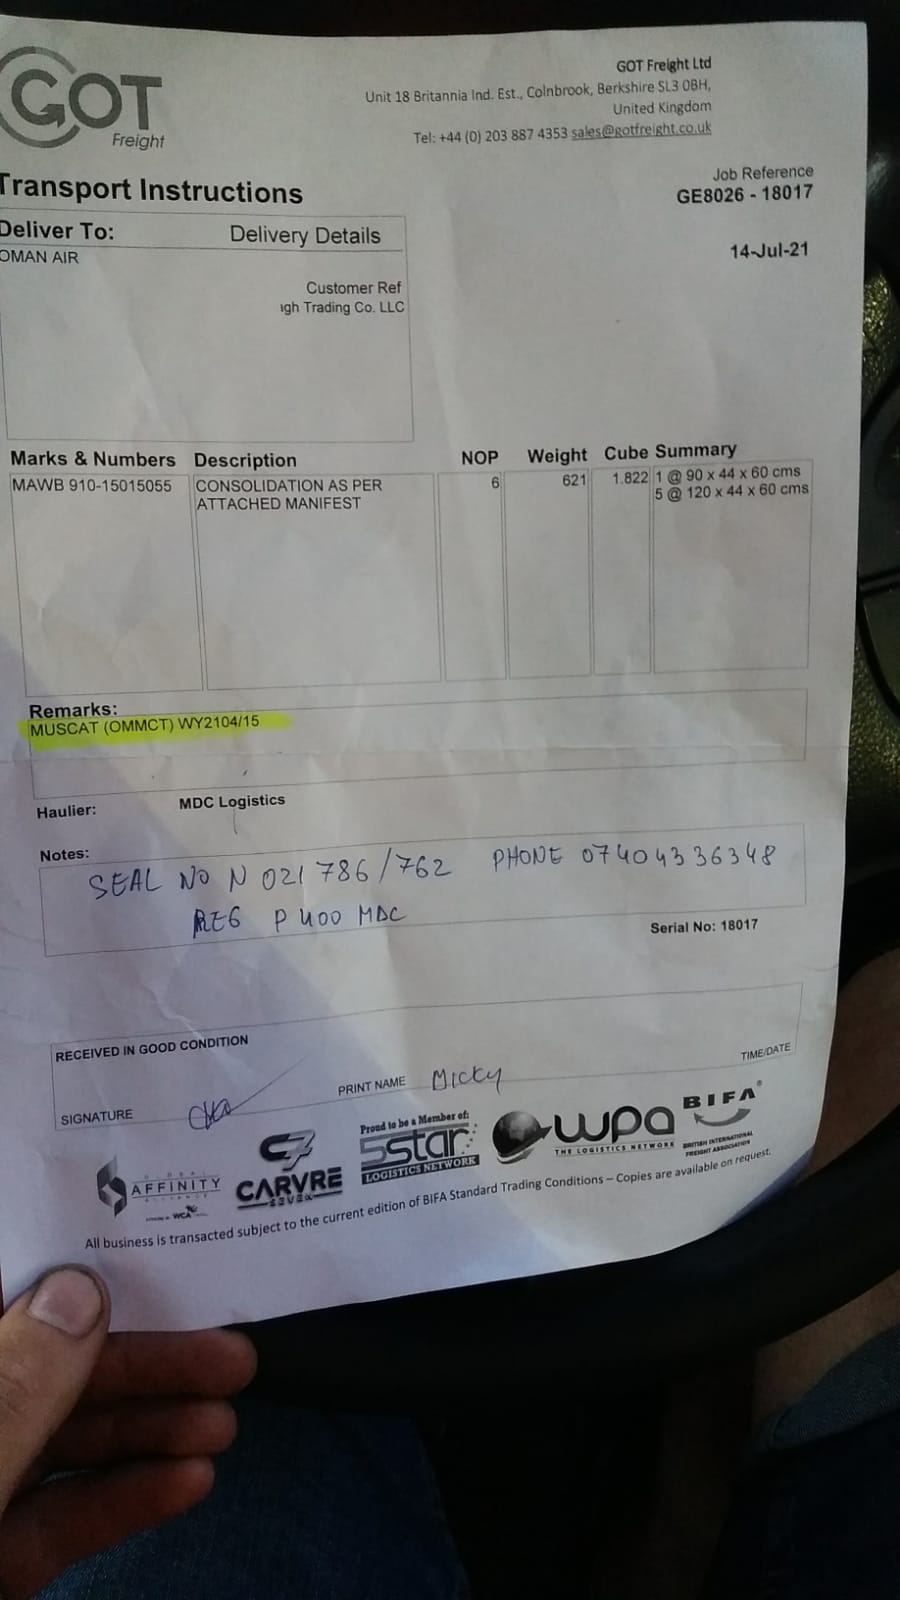 GOT
Freight
GOT Freight Ltd
Unit 18 Britannia Ind. Est., Colnbrook, Berkshire SL3 0BH,
United Kingdom
Tel: +44 (0) 203 887 4353 sales@gotfreight.co.uk
Transport Instructions
Job Reference
GE8026 - 18017
Deliver To: Delivery Details
OMAN AIR
14-Jul-21
Customer Ref
igh Trading Co. LLC
Marks & Numbers Description NOP Weight Cube Summary
MAWB 910-15015055 CONSOLIDATION AS PER 6 621 1.822 1 @ 90 x 44 x 60 cms
ATTACHED MANIFEST 5 @ 120 x 44 x 60 cms
Remarks:
MUSCAT (OMMCT) WY2104/15
Haulier: MDC Logistics
Notes:
SEAL NO N 021 786/762 PHONE 07404336348
REG P400 MDC
Serial No: 18017
RECEIVED IN GOOD CONDITION
TIME/DATE
SIGNATURE PRINT NAME Micky
GLOBAL
AFFINITY
ALLIANCE
WCA
CARVRE
SEVEN
Proud to be a Member of:
5star
LOGISTICS NETWORK
wpa
THE LOGISTICS NETWORK
BIFA
BRITISH INTERNATIONAL
FREIGHT ASSOCIATION
All business is transacted subject to the current edition of BIFA Standard Trading Conditions – Copies are available on request.